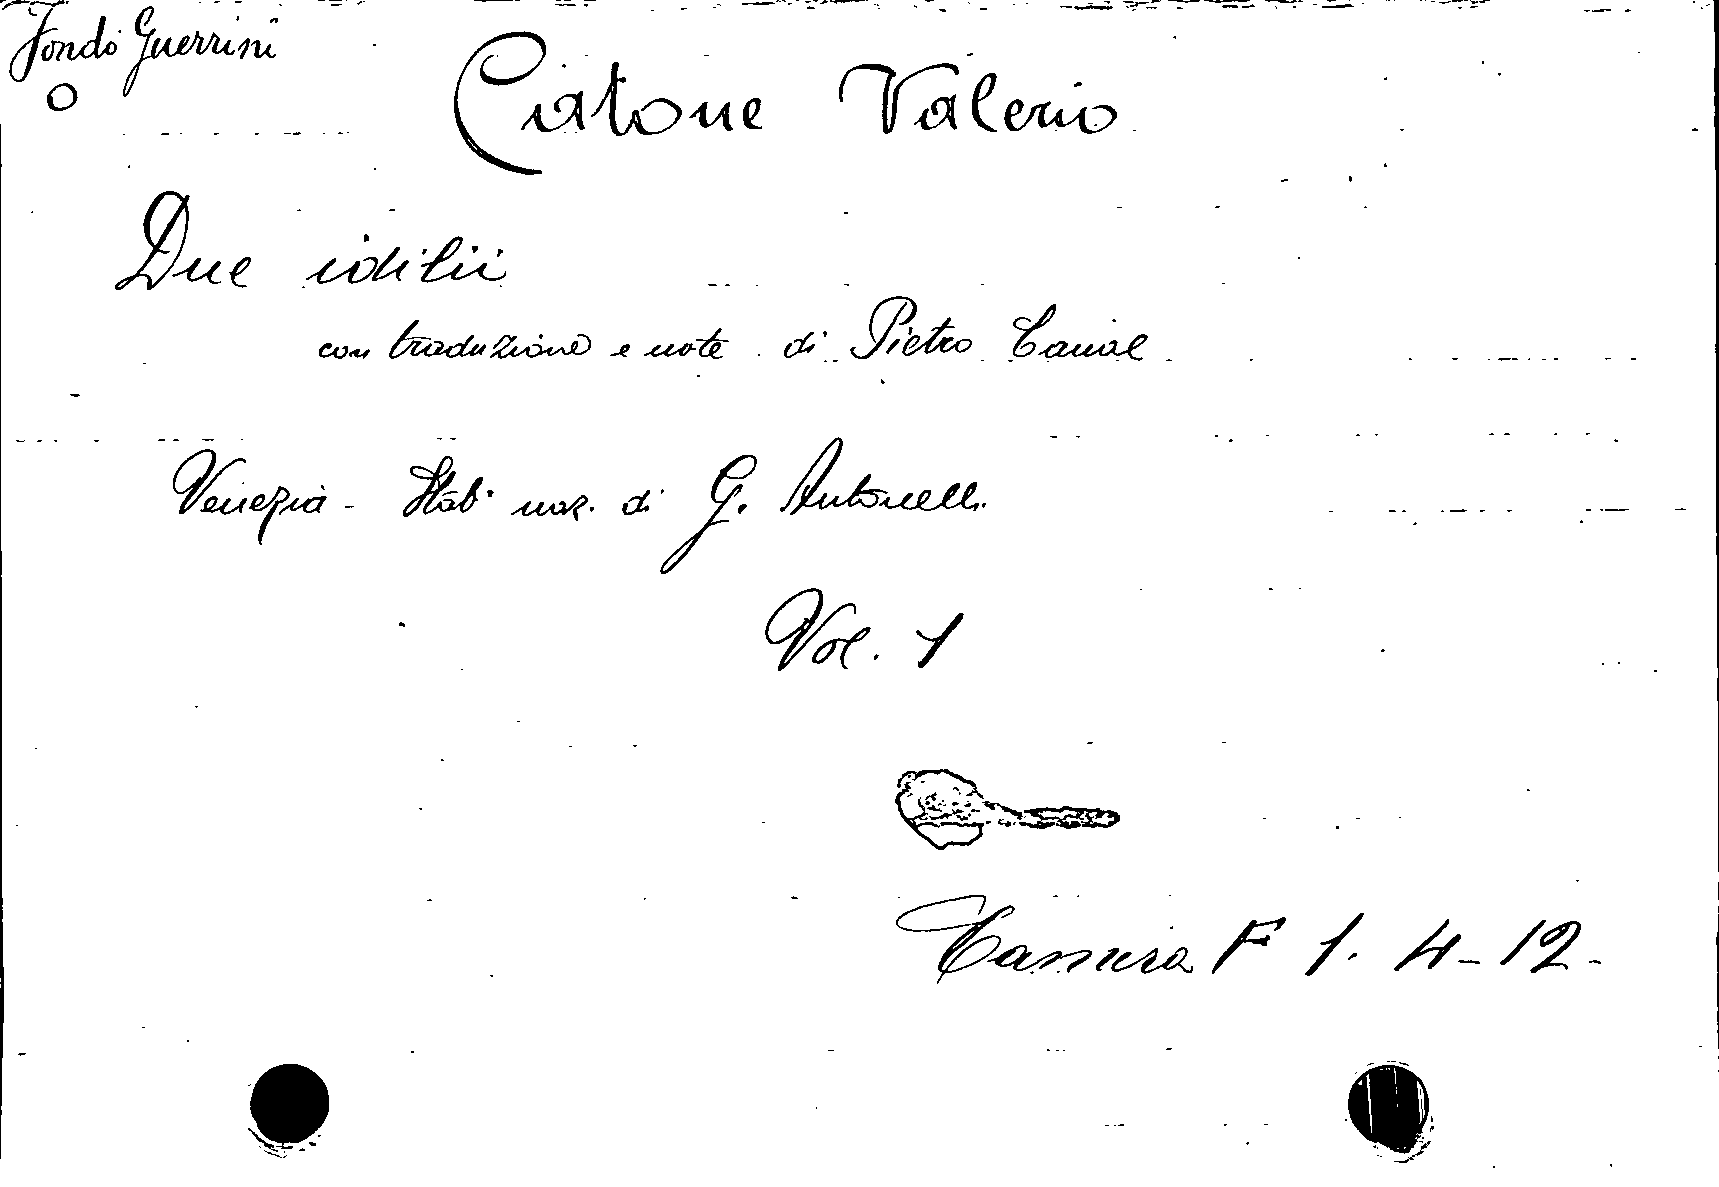 Fondo Guerrini
O
Catone Valerio
Due idilii
con traduzione e note di Pietro Canal
Venezia - Stab. naz. di G. Antonelli
Vol. 1
Camera F 1. 4-12-